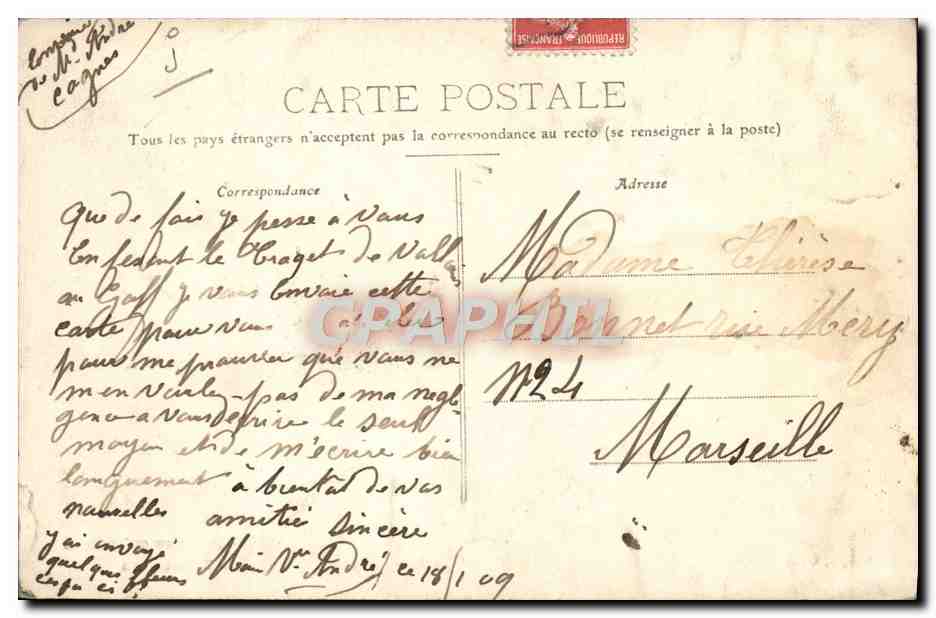 de M. André
Cagnes
REPUBLIQUE FRANÇAISE
CARTE POSTALE
Tous les pays étrangers n'acceptent pas la correspondance au recto (se renseigner à la poste)
Correspondance
Que de fois je pesse à vous
En fesant le traget de Vallauris
au Golf je vous envoie cette
carte pour vous
pour me prouver que vous ne
m'en voulez pas de ma negli
gence a vous écrire le seul
moyen et de m'écrire bien
longuement à bientot de vos
nouvelles amitié sincère
Ve André ce 18/1 09
j'ai envoyé
quelques fleurs
Adresse
Madame Thérèse
Bonnet rue Mery
N° 24
Marseille
CPAPHIL